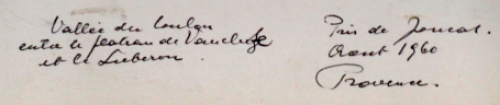 Vallée du Coulon
entre le plateau de Vaucluse
et le Luberon.
Près de Joucas.
Aout 1960
Provence.